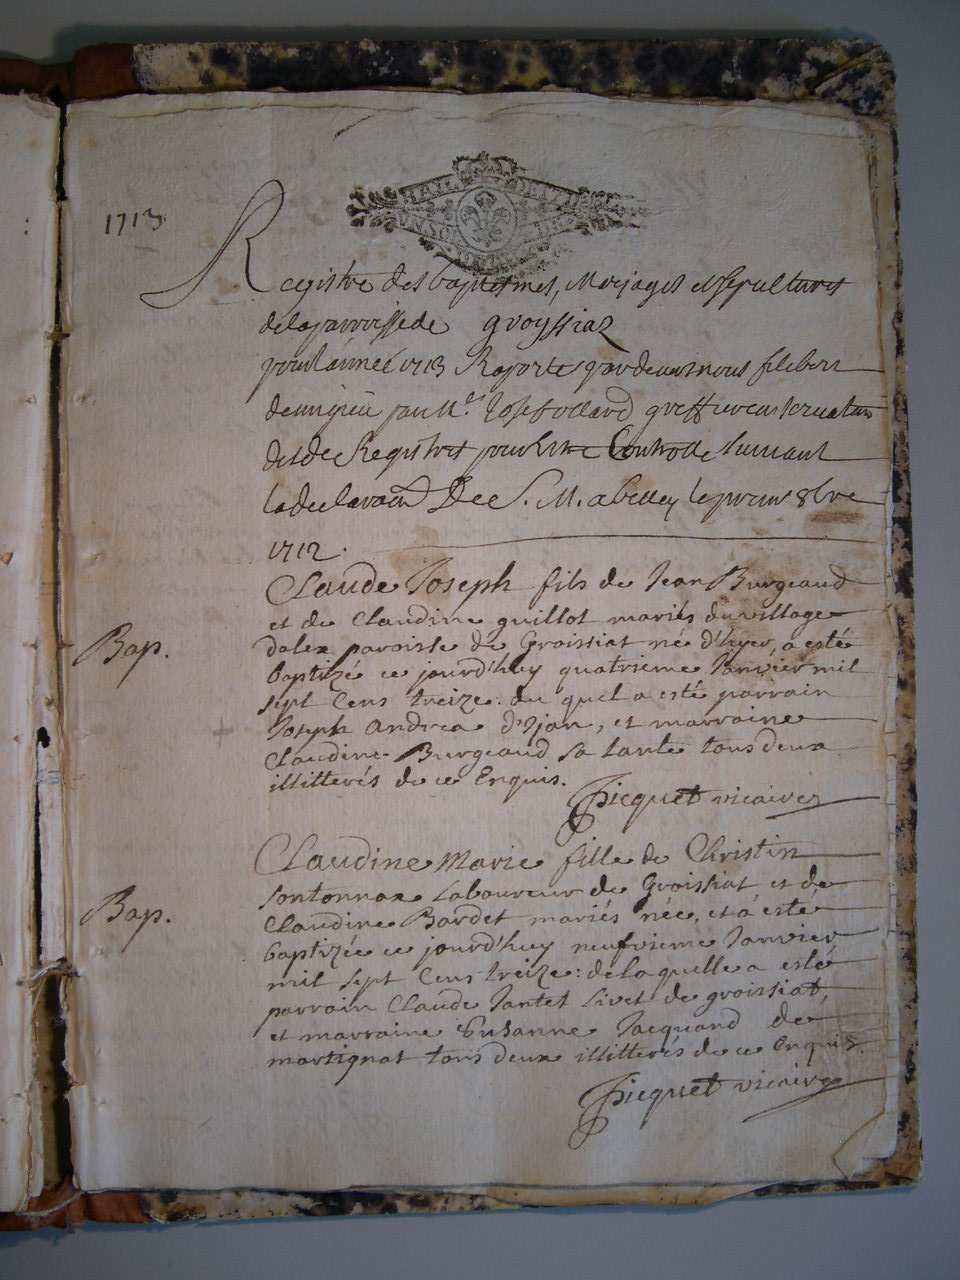 1713.
Registre des baptesmes, Mariages et sepultures
de la parroisse de groyssiaz
pour l'année 1713 Raporté par devant nous filibert
par Me Josef greffier conservateur
des de Registres pour Estre Controllé suivant
la declaraon De S. M. a belley le premier 8bre
1712.
Claude Joseph fils de Jean Burgeaud
et de Claudine guillot mariés du village
dalex paroisse de Groissiat né d'hyer, a esté
Bap.
baptizé ce jourd'huy quatrieme Janvier mil
sept Cens treize: du quel a esté parrain
Joseph Andrea d'Ijan, et marraine
Claudine Burgeaud sa tante tous deux
illitterés de ce Enquis.
Picquet vicaire
Claudine Marie fille de Christin
sontonnax Laboureur de Groissiat et de
Bap.
Claudine Bardet mariés née, et a esté
baptizée ce jourd'huy neufvieme Janvier
mil sept Cens treize: de laquelle a esté
parrain Claude Jantet Livet de groissiat,
et marraine Susanne Jacquand de
martignat tous deux illitterés de ce Enquis.
Picquet vicaire